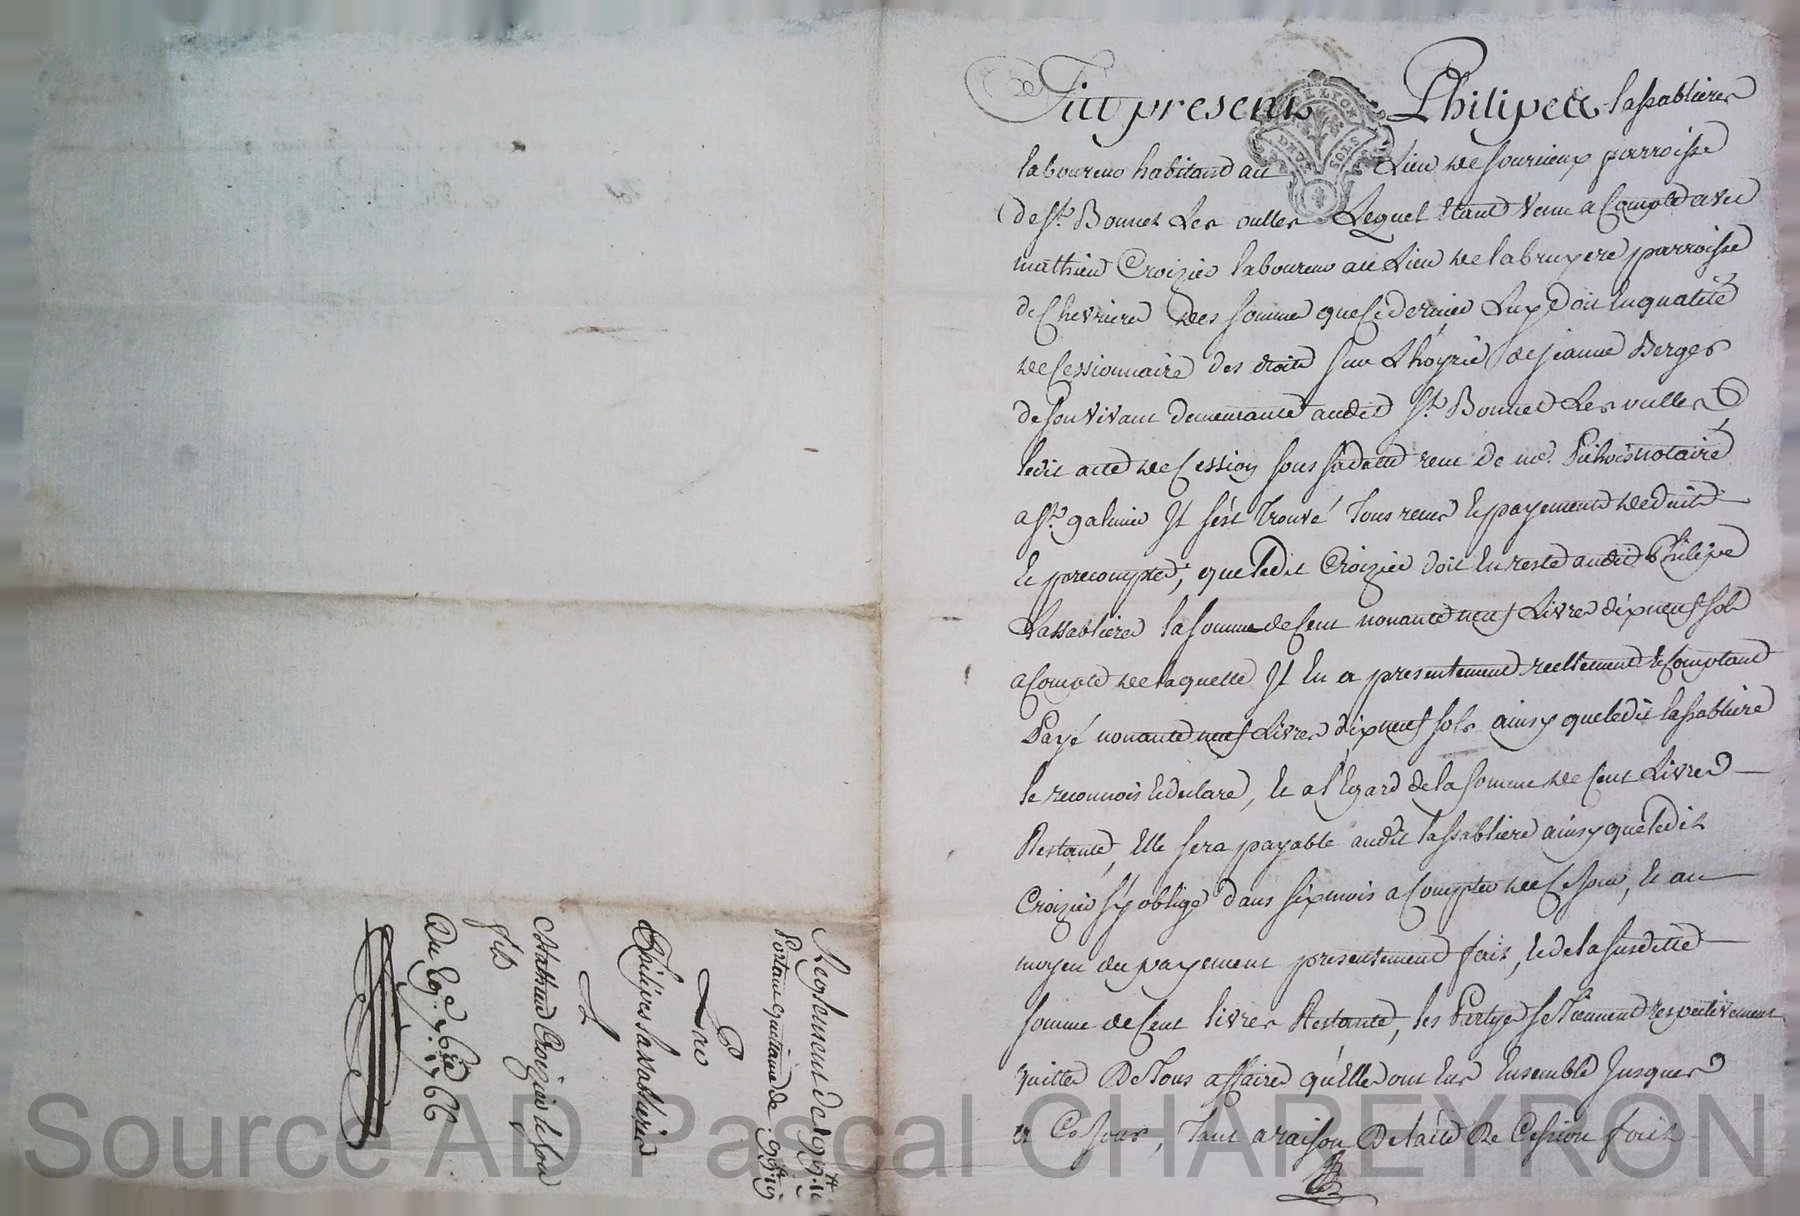 Fut present Philipe Lassabliere
laboureur habitand au Lieu de sourieux parroisse
de St. Bonnet Les oulles Lequel Etant Venu a Compte avec
mathieu Croizier laboureur au Lieu de labruyere parroisse
de Chevriere des somme que Ce dernier Luy doit En qualité
de Cessionnaire des droits sur L'hoyrie de jeanne Berger
de son Vivant demeurante audit St. Bonnet Les oulles
ledit acte de Cession sous sa datte receu de me. notaire
a St. galmier Il s'est Trouvé Tous receus Et payements deduits
Et precomptés, que ledit Croizier doit En reste audit Philipe
Lassabliere la somme de Cent nonante neuf Livres dix neuf sols
a Compte de laquelle Il En a presentement reellement Et Comptant
Payé nonante neuf Livres dix neuf sols ainsy que ledit lassabliere
le reconnois Et declare, Et a l'Egard de la somme de Cent Livres
Restante, Elle sera payable audit lassabliere ainsy que ledit
Croizier s'y oblige dans six mois a Compter de Ce jour, Et au
moyen du payement presentement fait, Et de la susditte
somme de Cent livres Restante, les Partyes se Tiennent respectivement
quitte De Tous affaires qu'Elles ont Eus Ensemble Jusques
a Ce Jour, Tant a raison De l'acte De Cession fait
Reglement de 199tt 19
Portant quittance de 99tt 19
Pre
Philipes Lassabliere
A
Mathieu Croizier Et son
fils
Du 7bre 1766
DE LYON
DEUX SOLS
Source AD Pascal CHAPEYRON